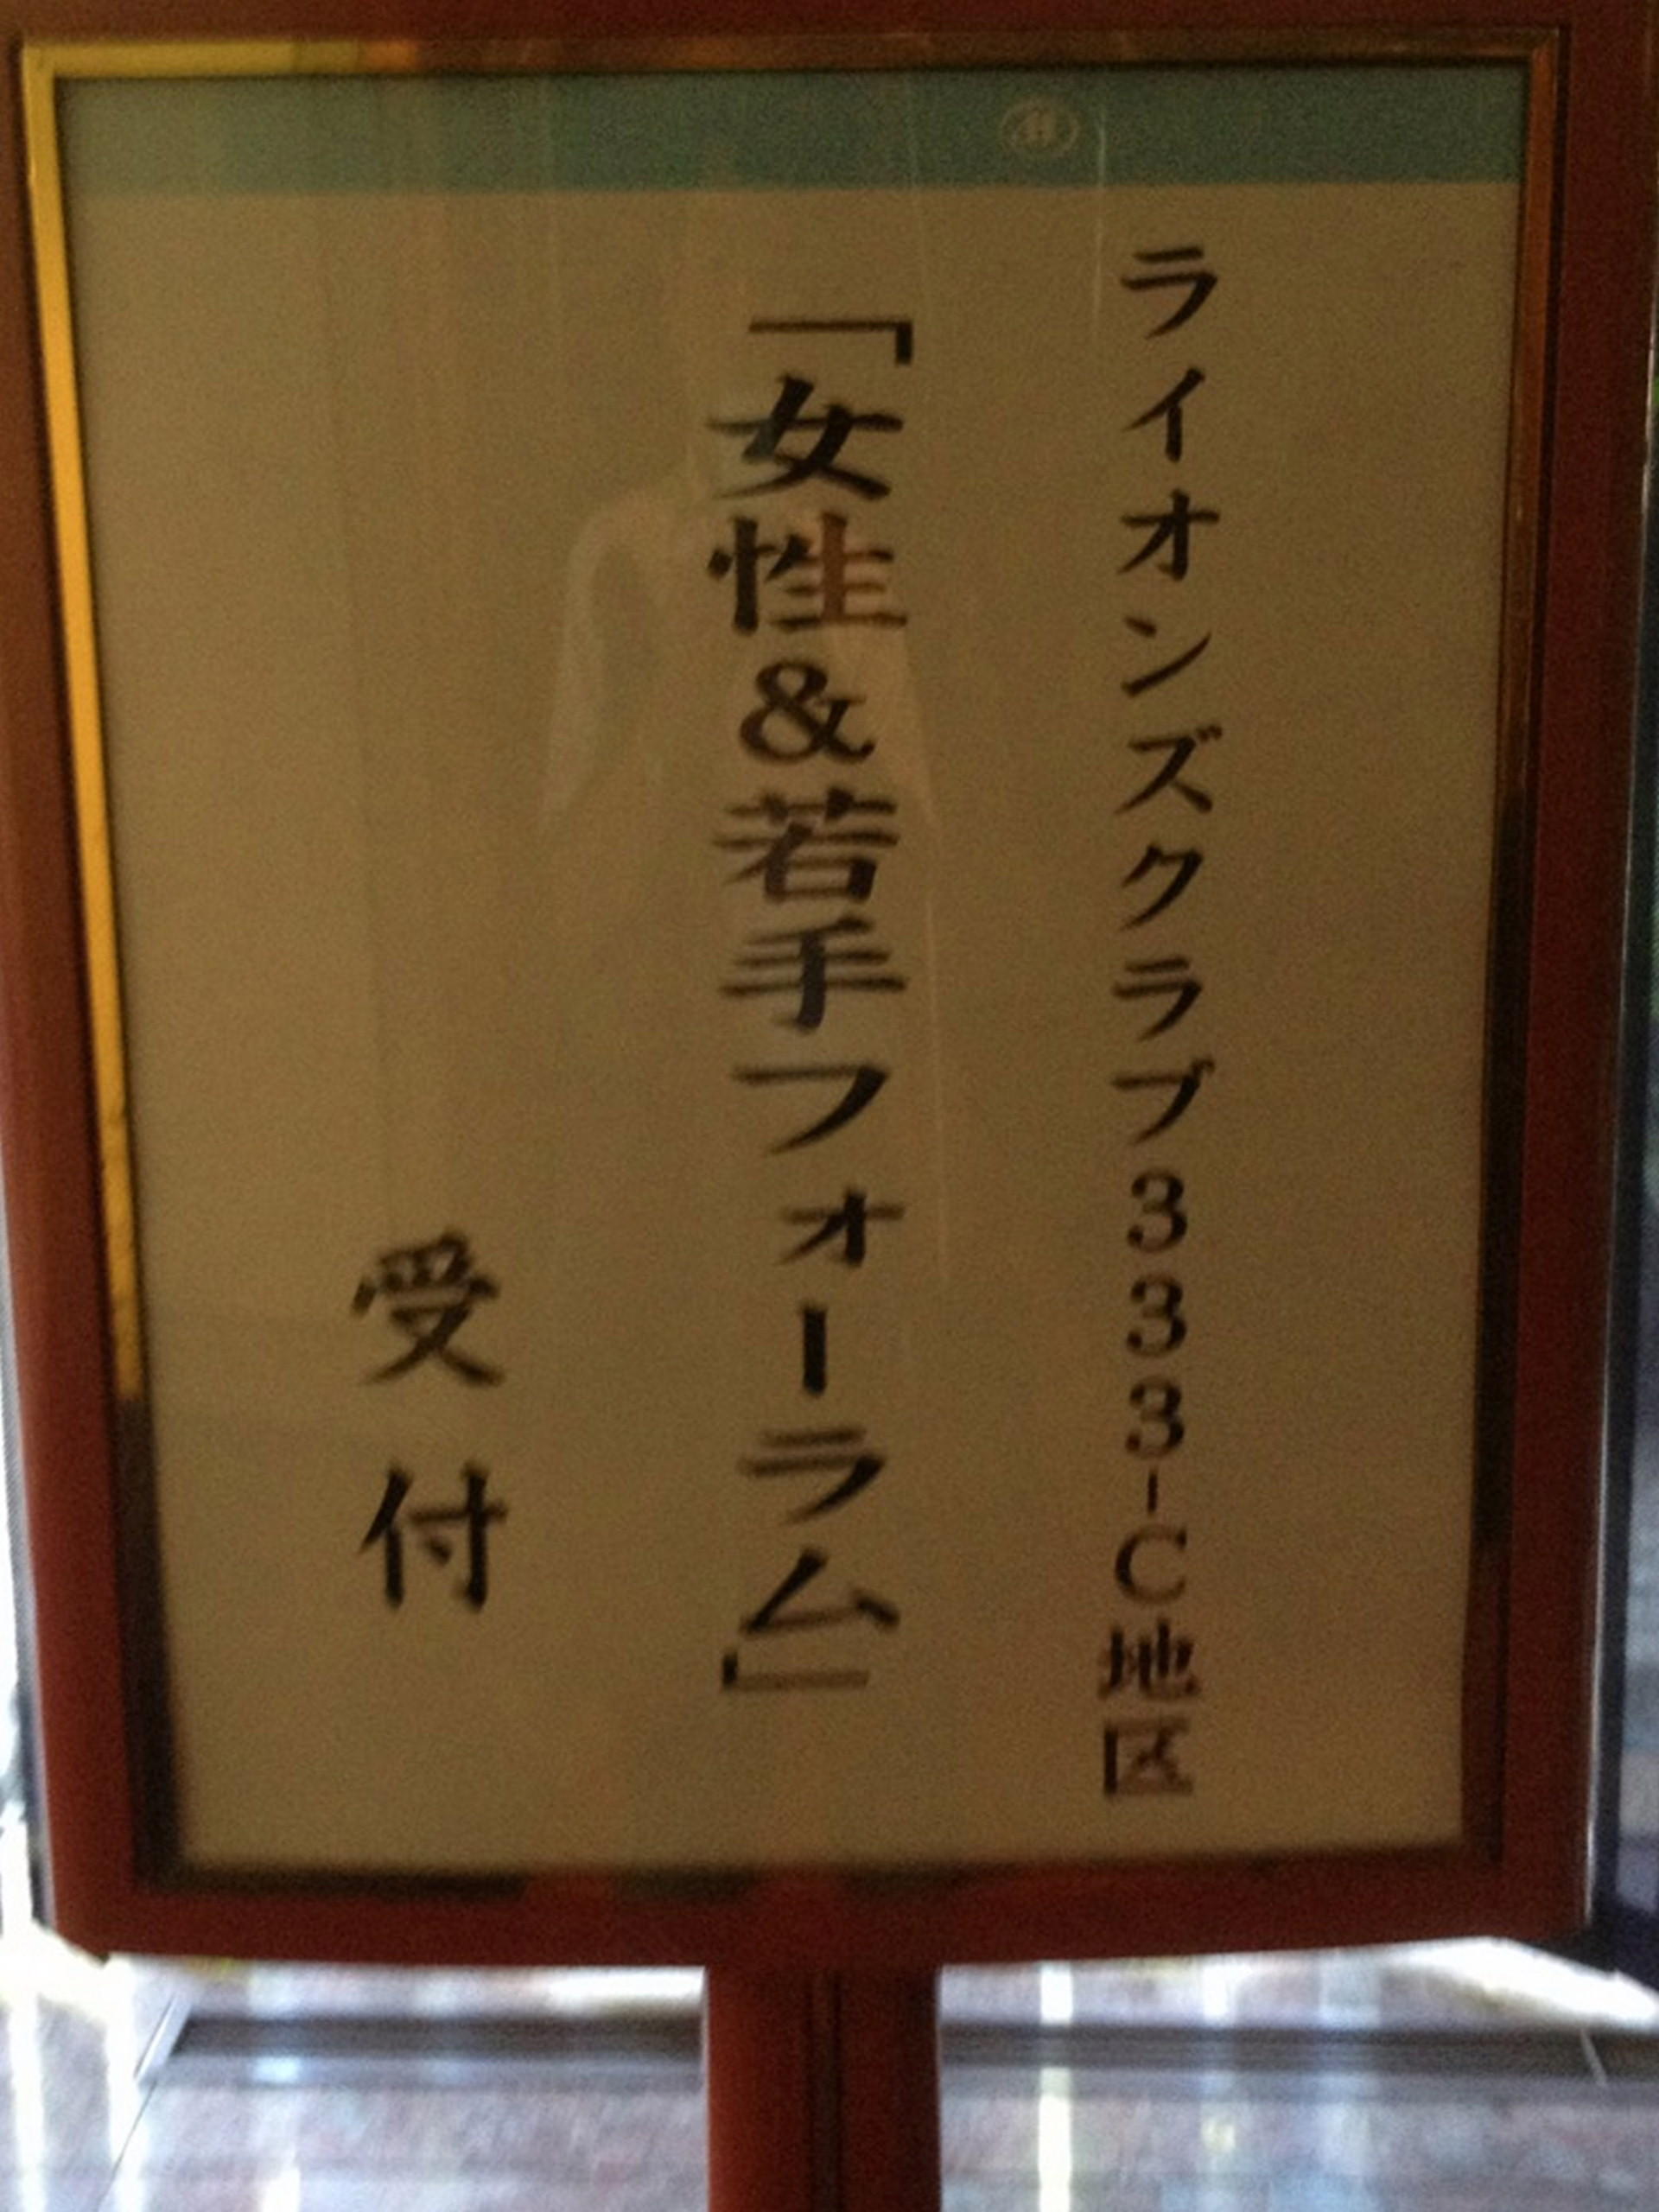 ライオンズクラブ333-C地区
「女性&若手フォーラム」
受付